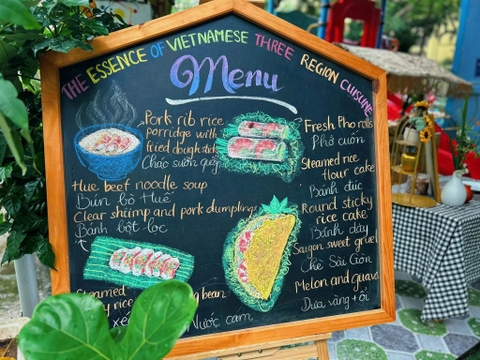 THE ESSENCE OF VIETNAMESE THREE REGION CUISINE
Menu
Pork rib rice
porridge with
fried dough stick
Cháo sườn quẩy
Hue beef noodle soup
Bún bò Huế
Clear shrimp and pork dumplings
Bánh bột lọc
Steamed
rice
bean
Nước cam
Fresh Pho rolls
Phở cuốn
Steamed rice
flour cake
Bánh đúc
Round sticky
rice cake
Bánh dày
Saigon sweet gruel
Chè Sài Gòn
Melon and guava
Dưa vàng + ổi